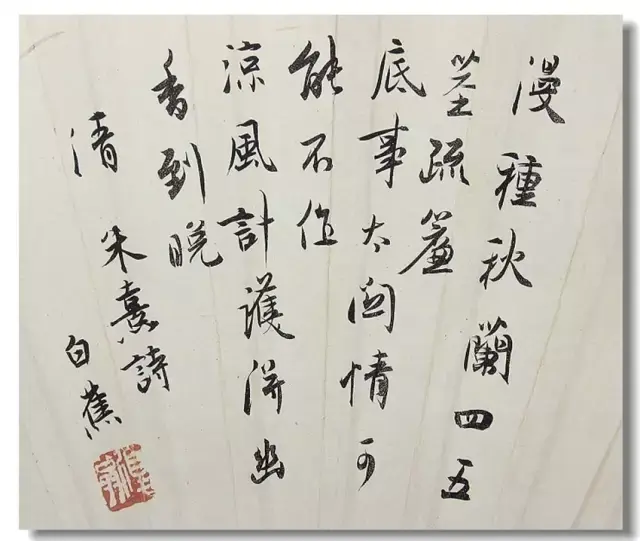 漫種秋蘭四五
茎疏簾
底事太関情可
能不作
涼風計護得幽
香到晚
清
朱熹詩
白蕉